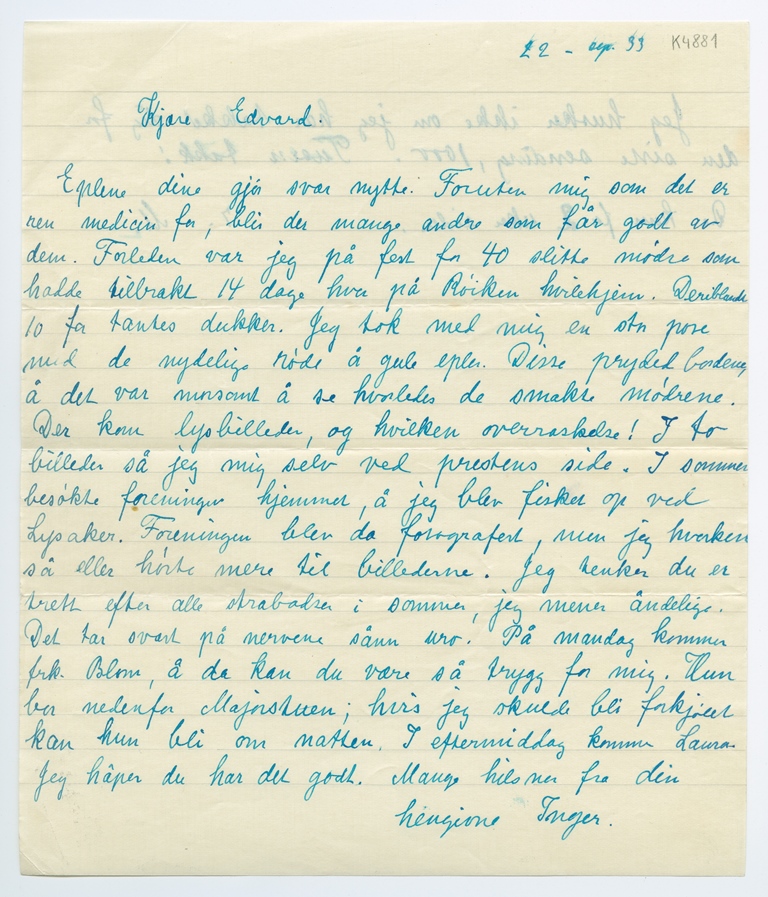 22 - sep. 33 K4881
Kjære Edvard.
Eplene dine gjör svær nytte. Foruten mig som det er
ren medicin for, blir der mange andre som får godt av
dem. Forleden var jeg på fest for 40 slitte mødre som
hadde tilbrakt 14 dage hver på Röiken hvilehjem. Deriblandt
10 fra tantes dukker. Jeg tok med mig en stor pose
med de nydelige röde å gule epler. Disse prydet bordene,
å det var morsomt å se hvorledes de smakte mödrene.
Der kom lysbilleder, og hvilken overraskelse! I to
billeder så jeg mig selv ved prestens side. I sommer
besökte foreningen hjemmet, å jeg blev fisket op ved
Lysaker. Foreningen blev da fotografert, men jeg hverken
så eller hörte mere til billederne. Jeg tenker du er
trett efter alle strabadser i sommer, jeg mener åndelige.
Det tar svært på nervene sånn uro. På mandag kommer
frk. Blom, å da kan du være så trygg for mig. Hun
bor nedenfor Majorstuen; hvis jeg skulde bli forkjölet
kan hun bli om natten. I eftermiddag kommer Laura.
Jeg håper du har det godt. Mange hilsner fra din
hengivne Inger.
Jeg husker ikke om jeg har takket dig for
den siste sending, 1000. Tusen takk!